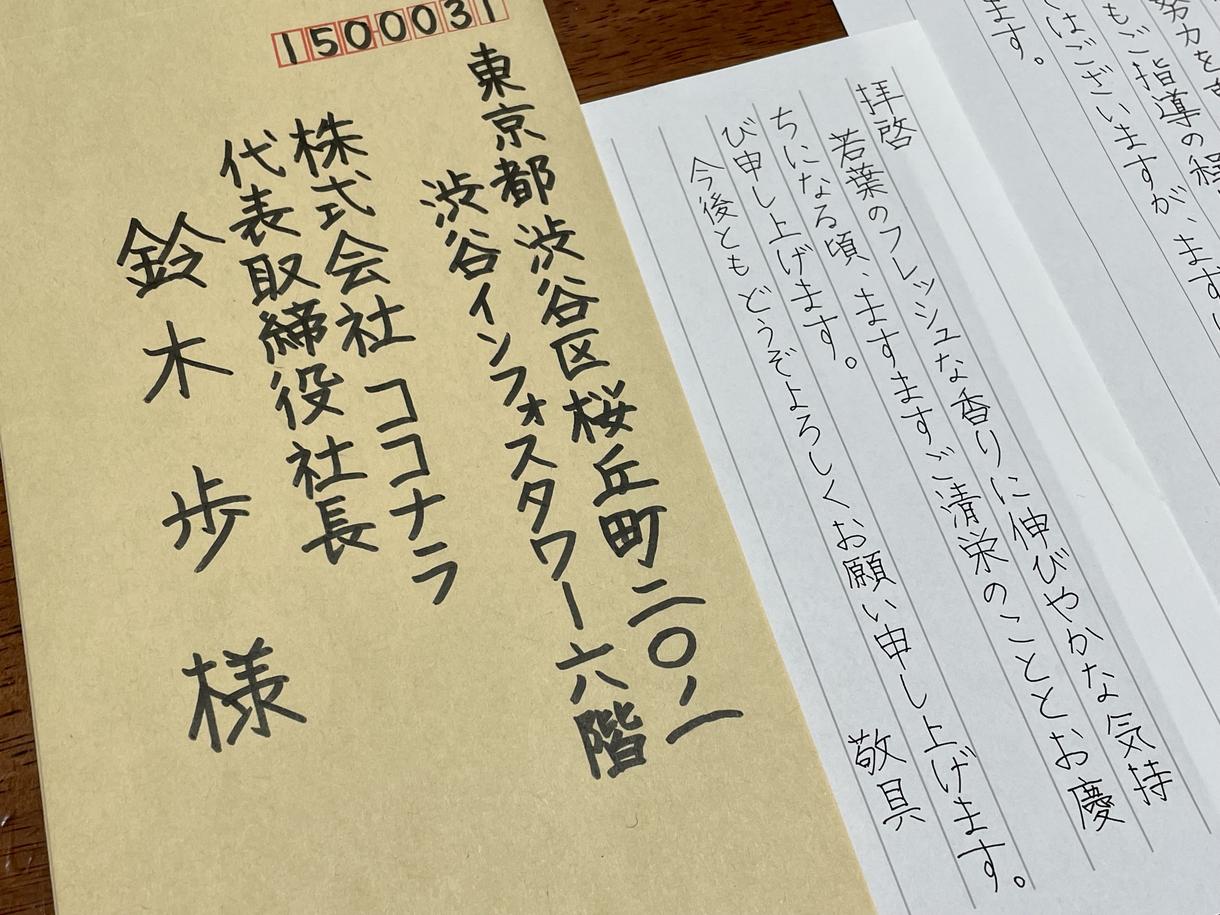 1500031
東京都渋谷区桜丘町二〇ノ一
渋谷インフォスタワー六階
株式会社 ココナラ
代表取締役社長
鈴木 歩 様
拝啓
若葉のフレッシュな香りに伸びやかな気持
ちになる頃、ますますご清栄のこととお慶
び申し上げます。
今後ともどうぞよろしくお願い申し上げます。
敬具
努力を
もご指導の程
はございますが、ます
ます。